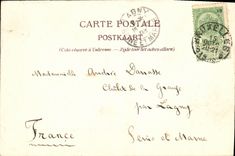 CARTE POSTALE
POSTKAART
(Côté réservé à l'adresse. — Zijde voor het adres alleen.)
Mademoiselle
Château de la Grange
par Lagny
France Seine et Marne